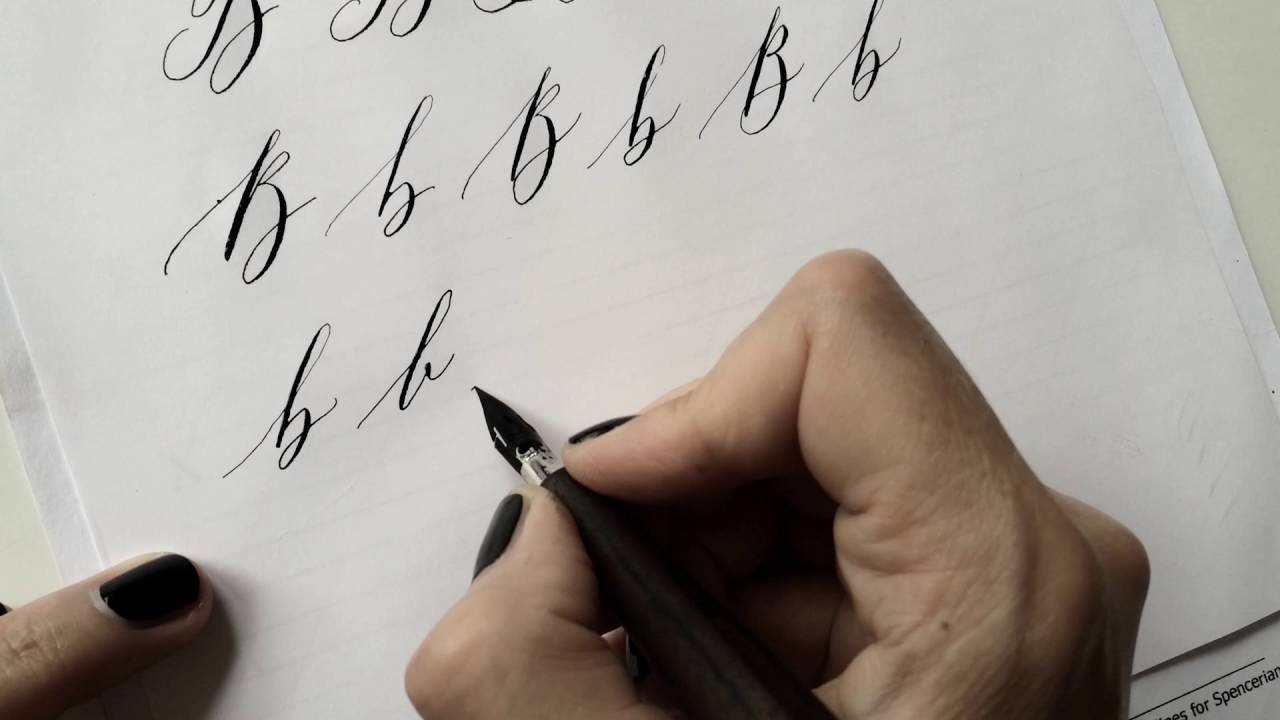 B B
B b B b B b
b b
nes for Spencerian